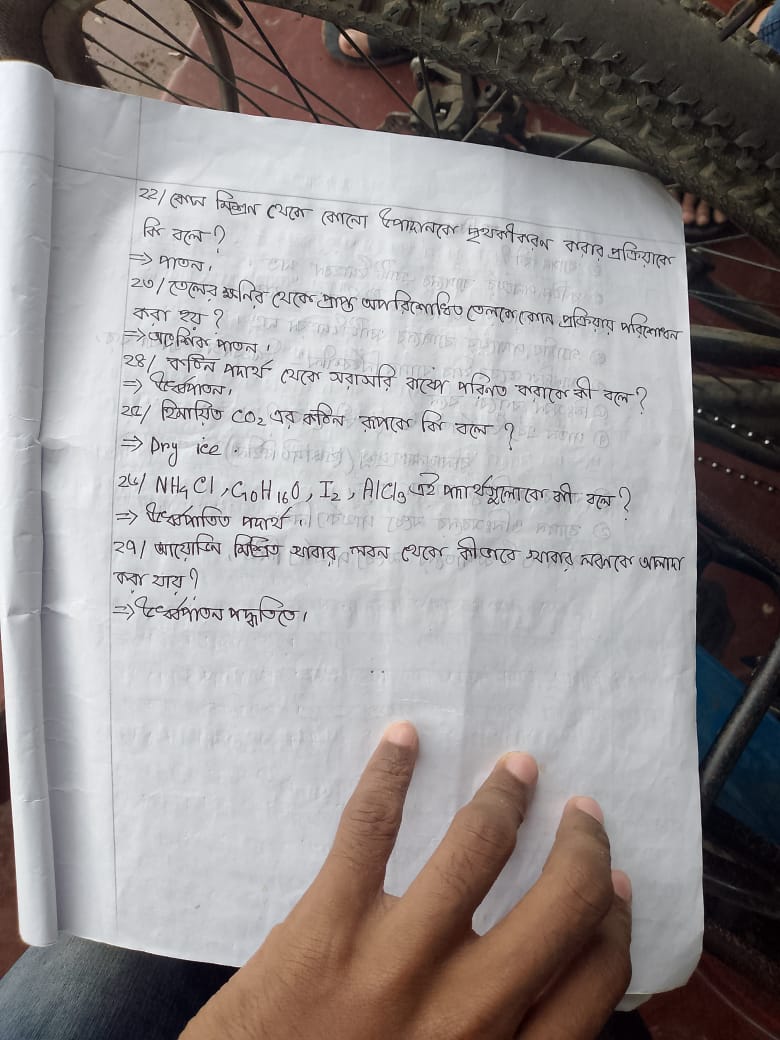 ২২/ কোন মিশ্রন থেকে কোনো উপাদানকে পৃথকীকরন করার প্রক্রিয়াকে
কি বলে ?
⇒ পাতন।
২৩/ তেলের খনির থেকে প্রাপ্ত অপরিশোধিত তেলকে কোন প্রক্রিয়ায় পরিশোধন
করা হয় ?
⇒ আংশিক পাতন।
২৪/ কঠিন পদার্থ থেকে সরাসরি বাষ্পে পরিনত করাকে কী বলে ?
⇒ ঊর্ধ্বপাতন।
২৫/ হিমায়িত CO₂ এর কঠিন রূপকে কি বলে ?
⇒ Dry ice .
২৬/ NH₄Cl, C₁₀H₁₆O, I₂, AlCl₃ এই পদার্থগুলোকে কী বলে ?
⇒ ঊর্ধ্বপাতিত পদার্থ।
২৭/ আয়োডিন মিশ্রিত খাবার লবন থেকে কীভাবে খাবার লবনকে আলাদা
করা যায় ?
⇒ ঊর্ধ্বপাতন পদ্ধতিতে।